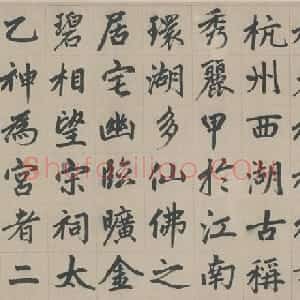 杭州西湖古稱
秀麗甲於江南
環湖多仙佛之
居宅幽臨曠金
碧相望宗祠太
乙神為宮者二
Shufaziliao.COM